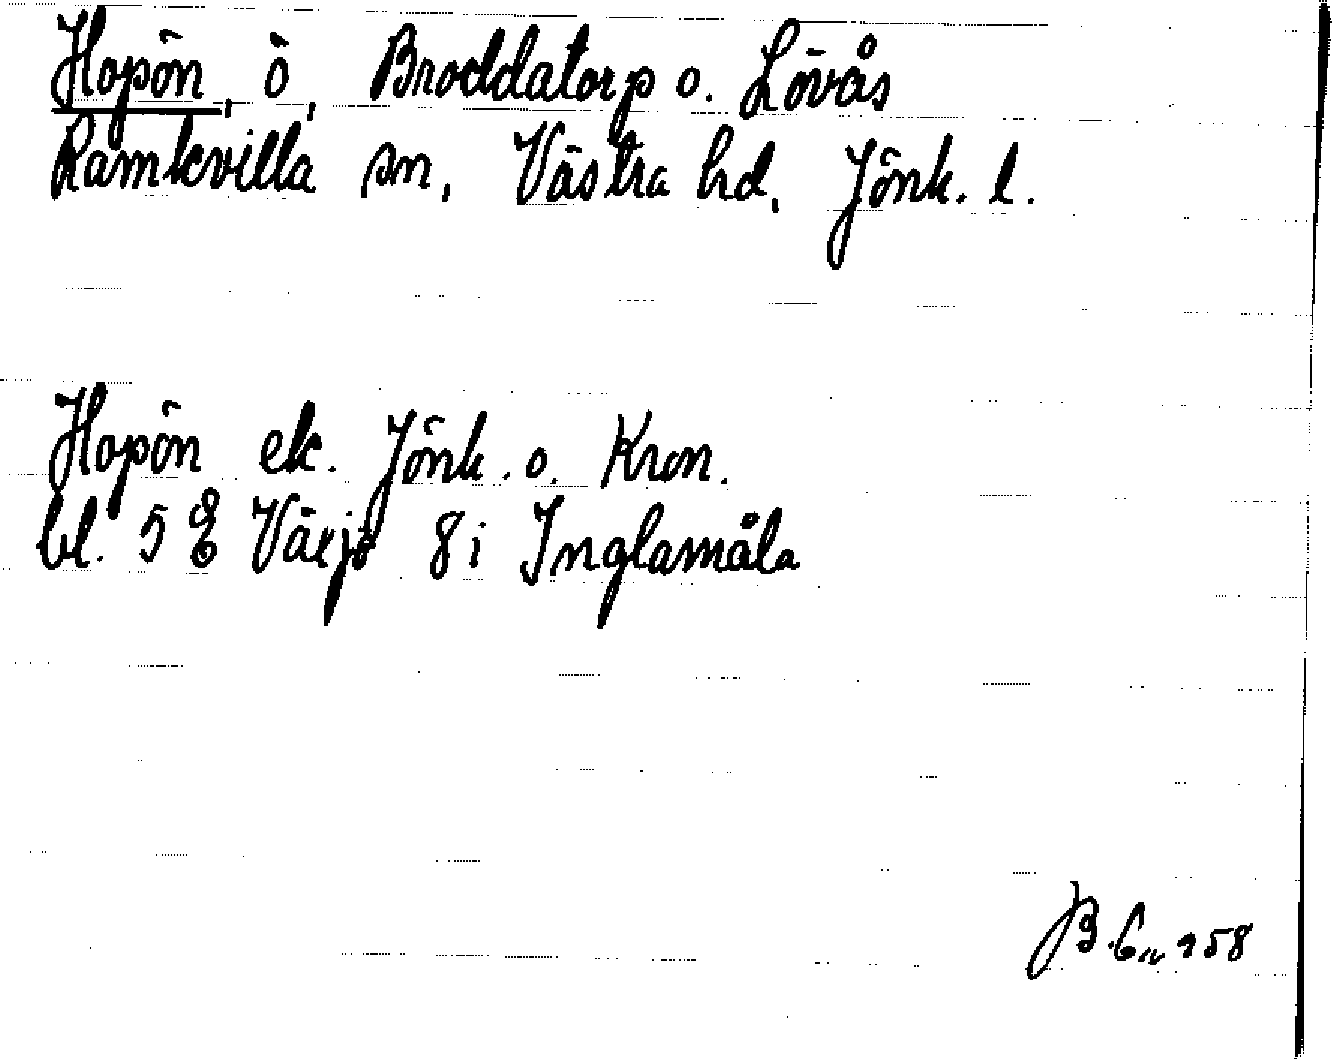 Hopön, ö, Broddatorp o. Lövås
Ramkvilla sn, Västra hd, Jönk. l.
Hopön ek. Jönk. o. Kron.
bl. 5 Växjö 8 i Inglamåla
158